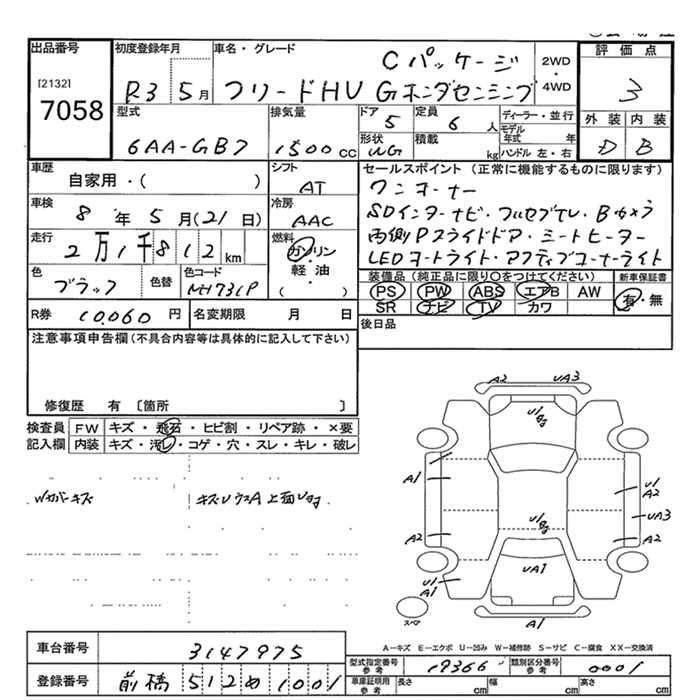 出品番号
[2132]
7058
初度登録年月
R3 5月
車名・グレード
Cパッケージ
フリードHV Gホンダセンシング
2WD
・
4WD
評価点
3
外装 内装
D B
型式
6AA-GB7
排気量
1500cc
ドア
5
定員
6人
形状
WG
積載
kg
ディーラー・並行
モデル年式 年
ハンドル 左・右
車歴
自家用・( )
シフト
AT
車検
8年5月(21日)
冷房
AAC
走行
2万1千812km
燃料
ガソリン
・
軽・油
( )
色
ブラック
色替
色コード
NH731P
R券 10,060円
名変期限 月 日
セールスポイント(正常に機能するものに限ります)
ワンオーナー
SDインターナビ・フルセグTV・Bカメラ
両側Pスライドドア・シートヒーター
LEDオートライト・アクティブコーナーライト
装備品(純正品に限り○をつけてください)
PS PW ABS エアB AW
SR ナビ TV カワ
新車保証書
有・無
後日品
注意事項申告欄(不具合内容等は具体的に記入して下さい)
修復歴 有 〔箇所 〕
検査員記入欄
FW キズ・飛石・ヒビ割・リペア跡・×要
内装 キズ・汚レ・コゲ・穴・スレ・キレ・破レ
Wカバーキズ
A2 UA3
U/
A1
U/
A2
UA3
U/
A2
A2
UA1
U/
A1
A1
スペア
A−キズ E−エクボ U−凹み W−補修跡 S−サビ C−腐食 XX−交換済
車台番号 3147975
登録番号 前橋 512 め 1001
型式指定番号 参考 19366
類別区分番号 参考 0001
車庫証明用 参考
長さ cm
幅 cm
高さ cm